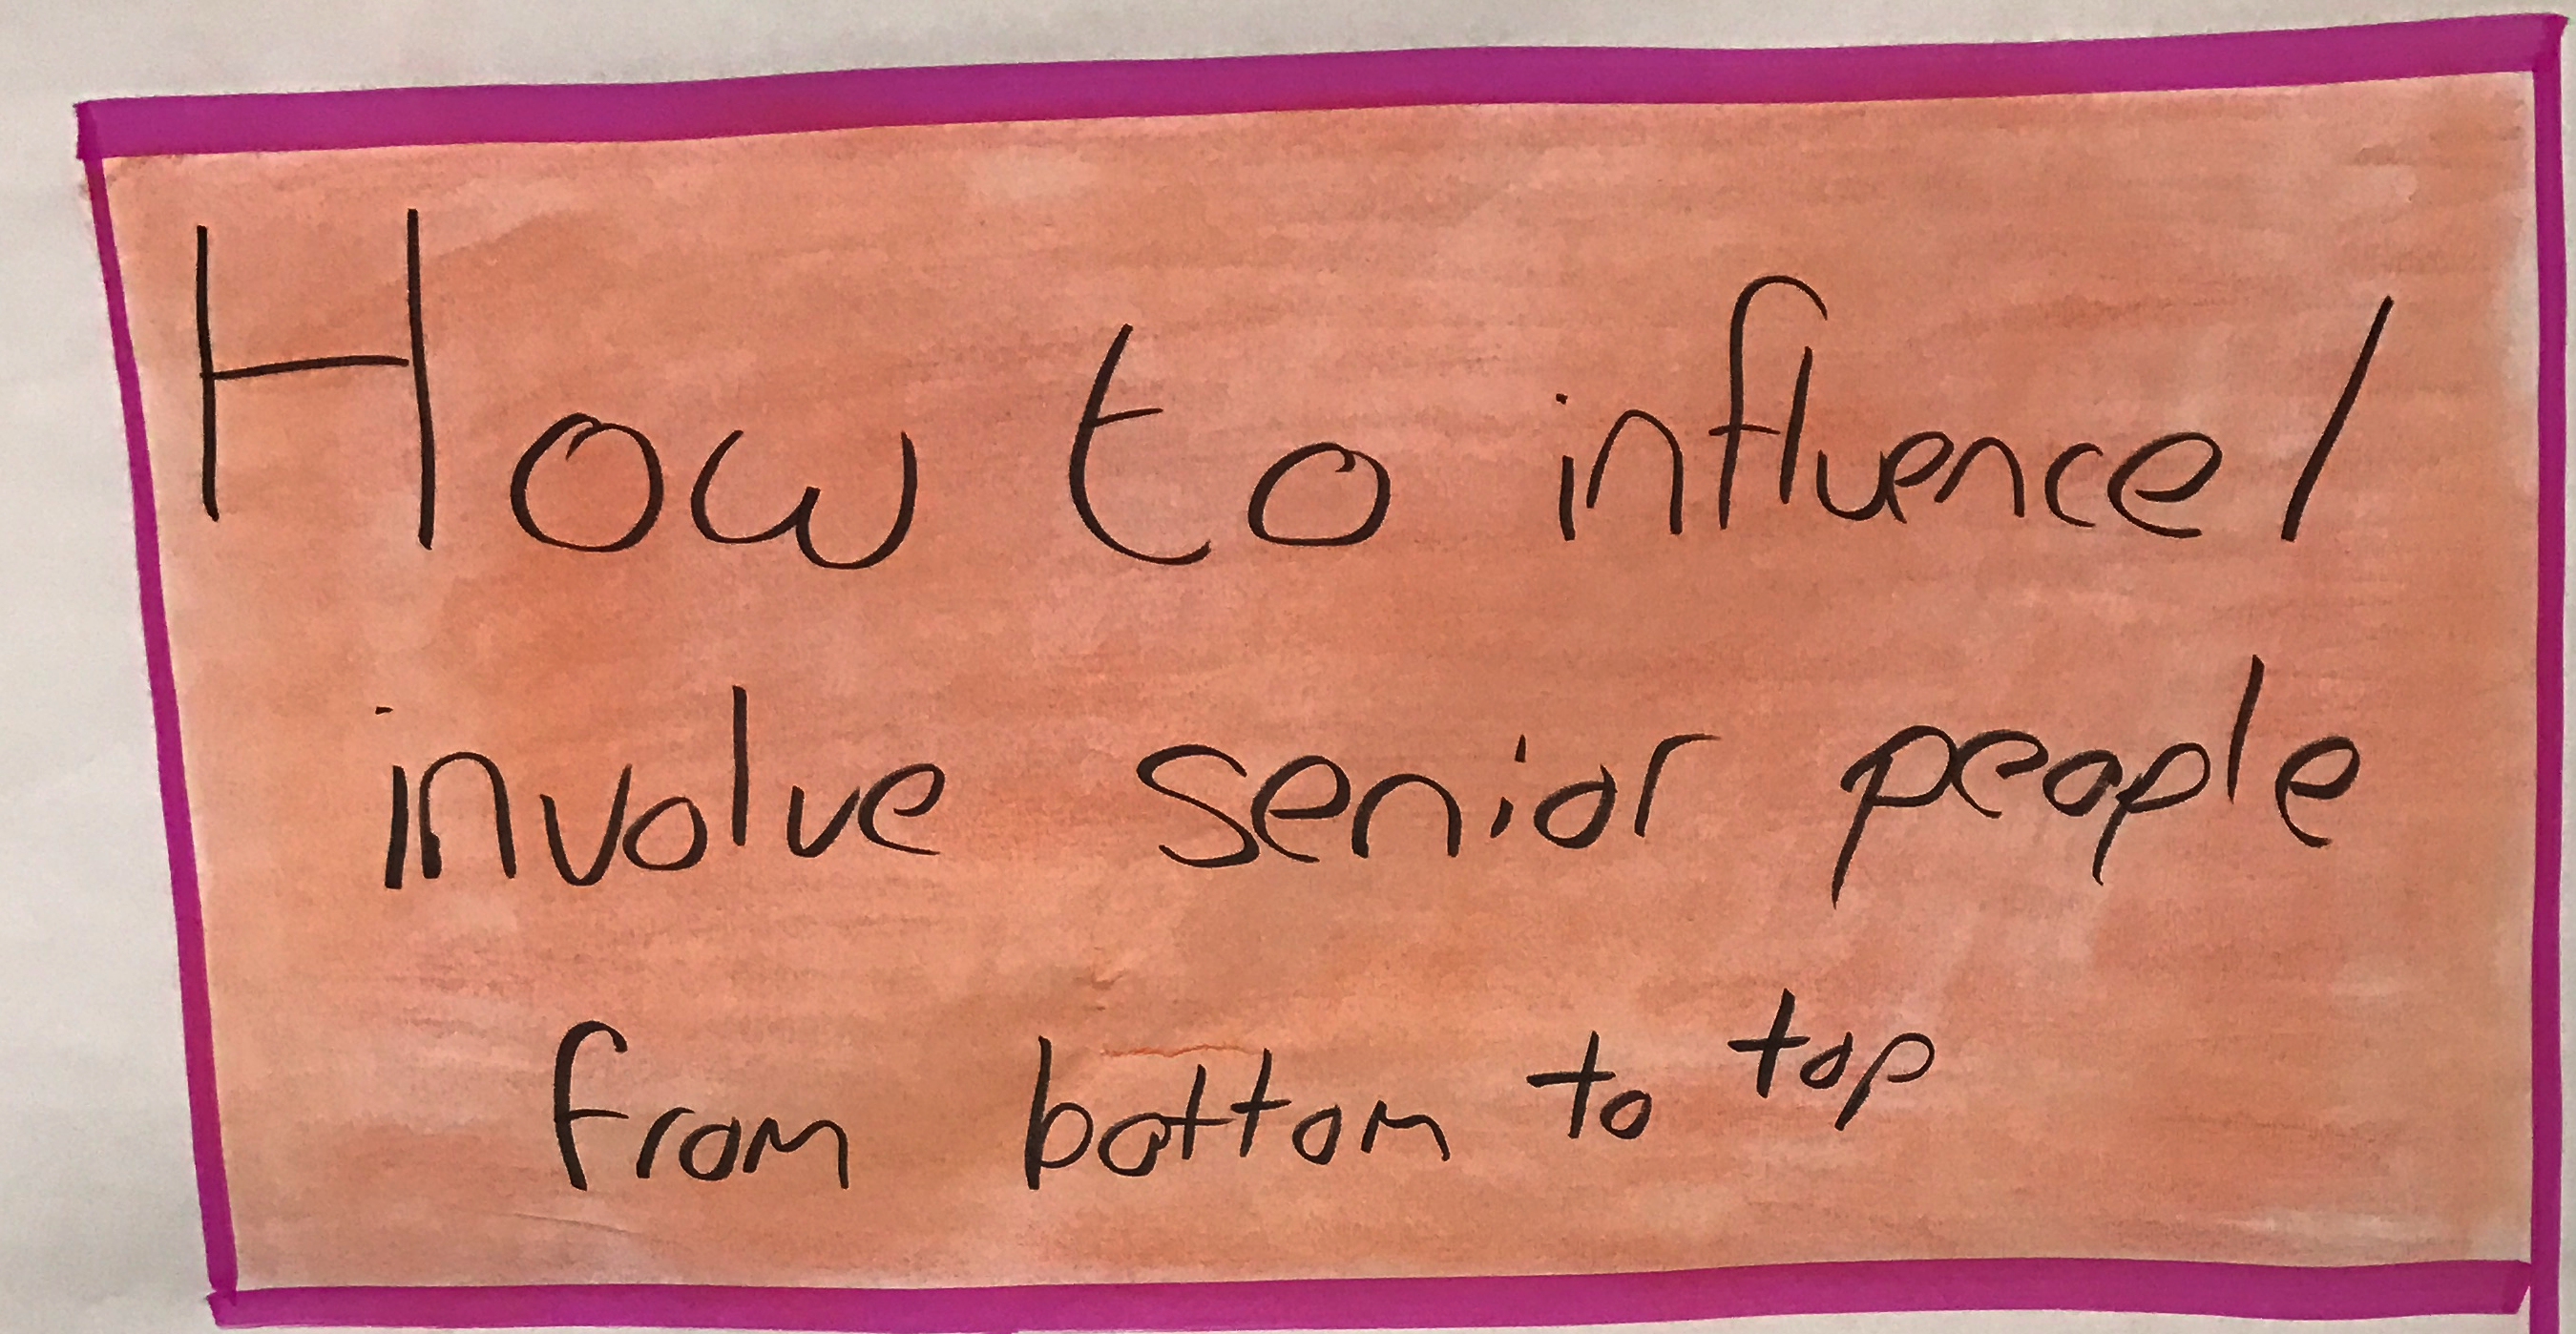 How to influence/
involve senior people
from bottom to top